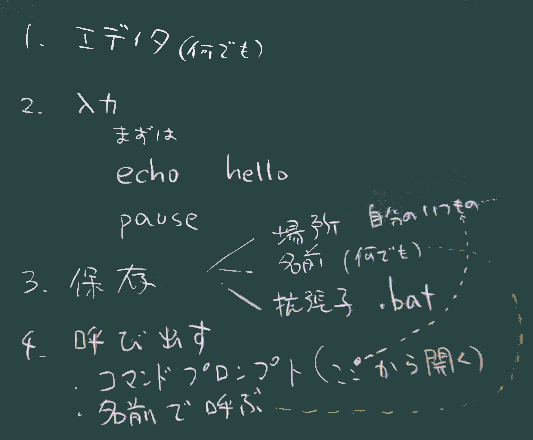 1. エディタ(何でも)
2. 入力
まずは
echo hello
pause
3. 保存
場所 自分のいつもの
名前 (何でも)
拡張子 .bat
4. 呼び出す
・コマンドプロンプト(ここから開く)
・名前で呼ぶ